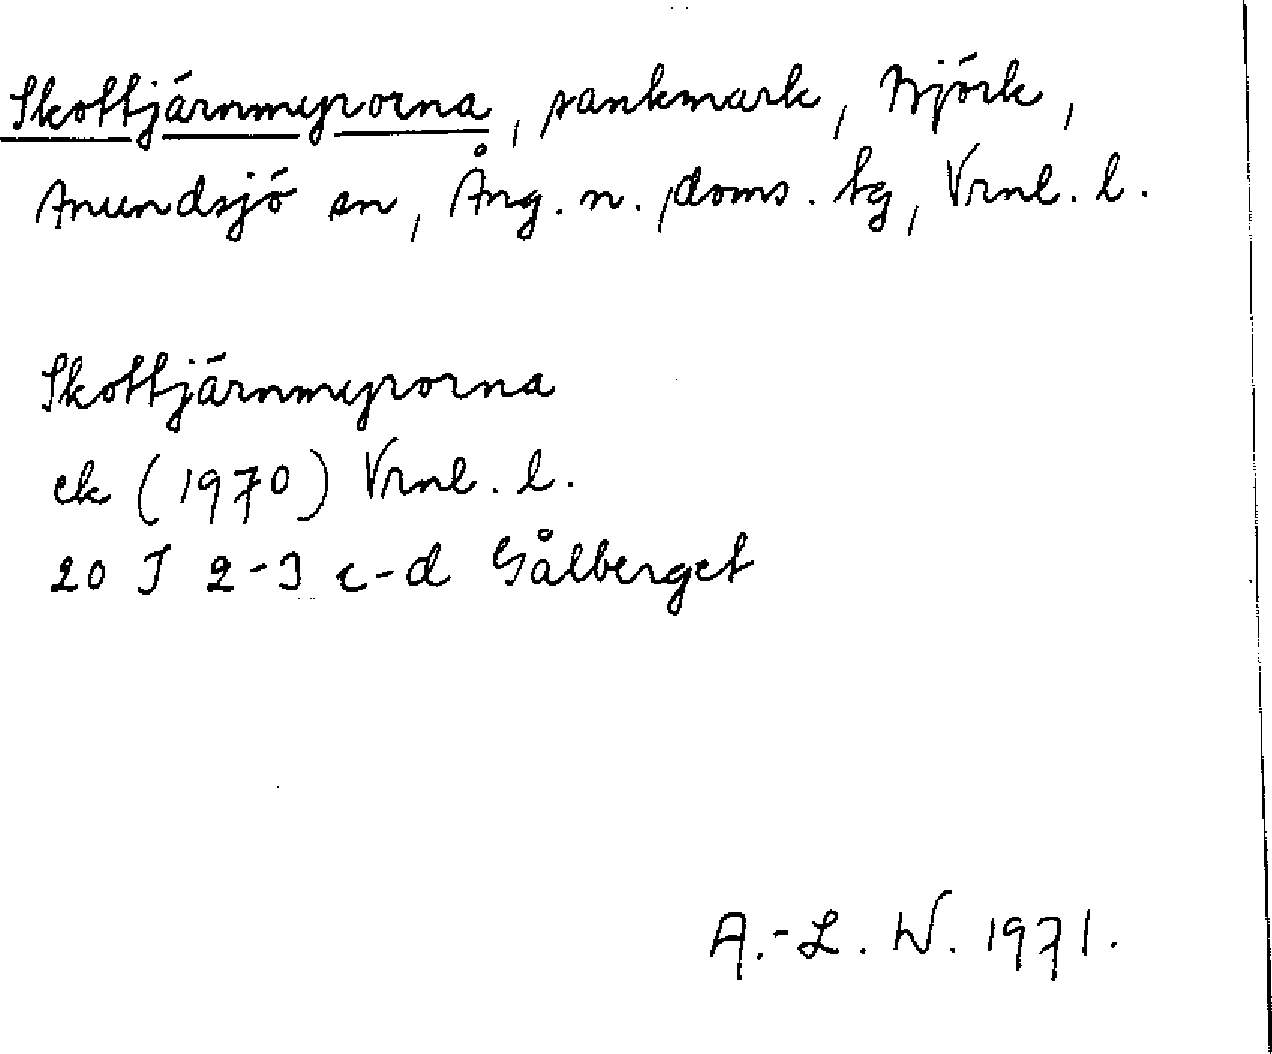 Skottjärnmyrorna, sankmark, Björk,
Anundsjö sn, Ång. n. doms. tg, Vrnl. l.
Skottjärnmyrorna
ek (1970) Vrnl. l.
20 J 2-3 c-d Gålberget
A.-L. W. 1971.